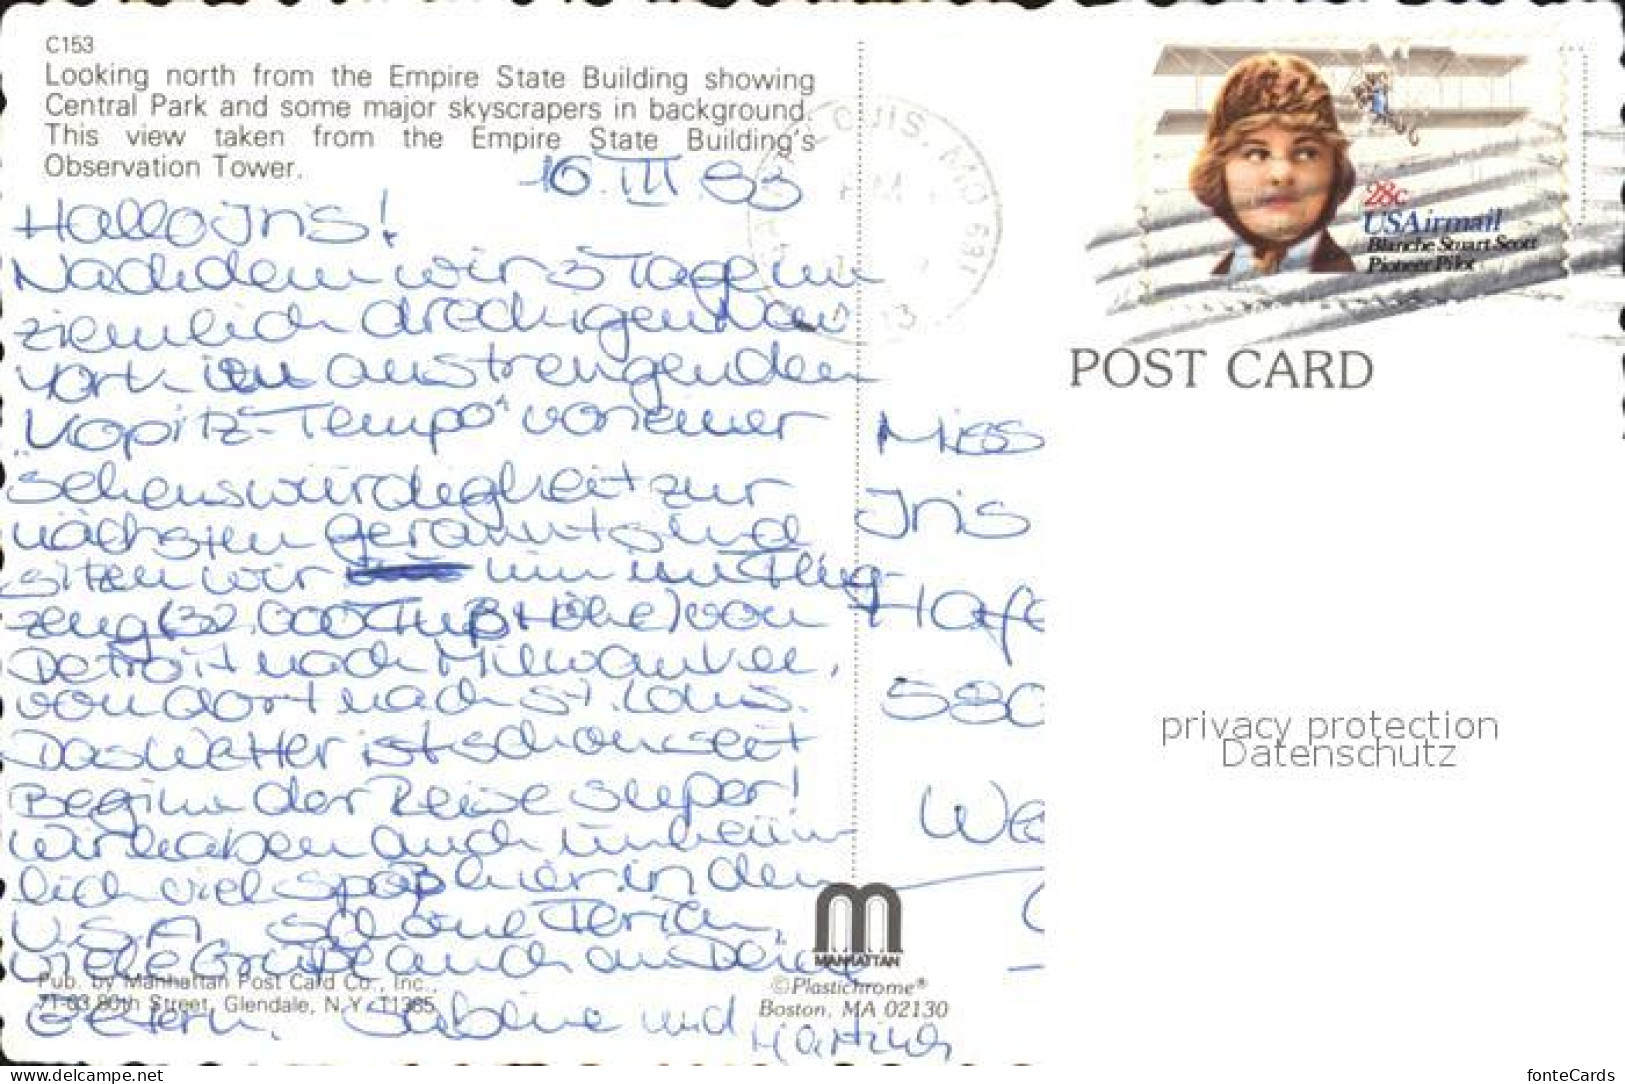 C153
Looking north from the Empire State Building showing
Central Park and some major skyscrapers in background.
This view taken from the Empire State Building's
Observation Tower.
16.III.83
Hallo Iris!
Nachdem wir 3 Tage im
ziemlich dreckigen New
York im anstrengenden
„Kopitz-Tempo" von einer
Sehenswürdigkeit zur
nächsten gerannt sind
sitzen wir nun im Flug-
zeug (32.000 Fuß Höhe) von
Detroit nach Milwaukee,
von dort nach St. Louis.
Das Wetter ist schon seit
Beginn der Reise super!
Wir haben auch unheim
lich viel Spaß hier in den
USA. Schöne Ferien,
viele Grüße auch an Deine
Eltern. Sabine und
Hartmut
Pub. by Manhattan Post Card Co., Inc.,
71-03 80th Street, Glendale, N.Y. 11385
MANHATTAN
©Plastichrome®
Boston, MA 02130
LOUIS, MO 631
28c
USAirmail
Blanche Stuart Scott
Pioneer Pilot
POST CARD
Miss
Iris
Hafe
580
We
privacy protection
Datenschutz
www.delcampe.net
fonteCards